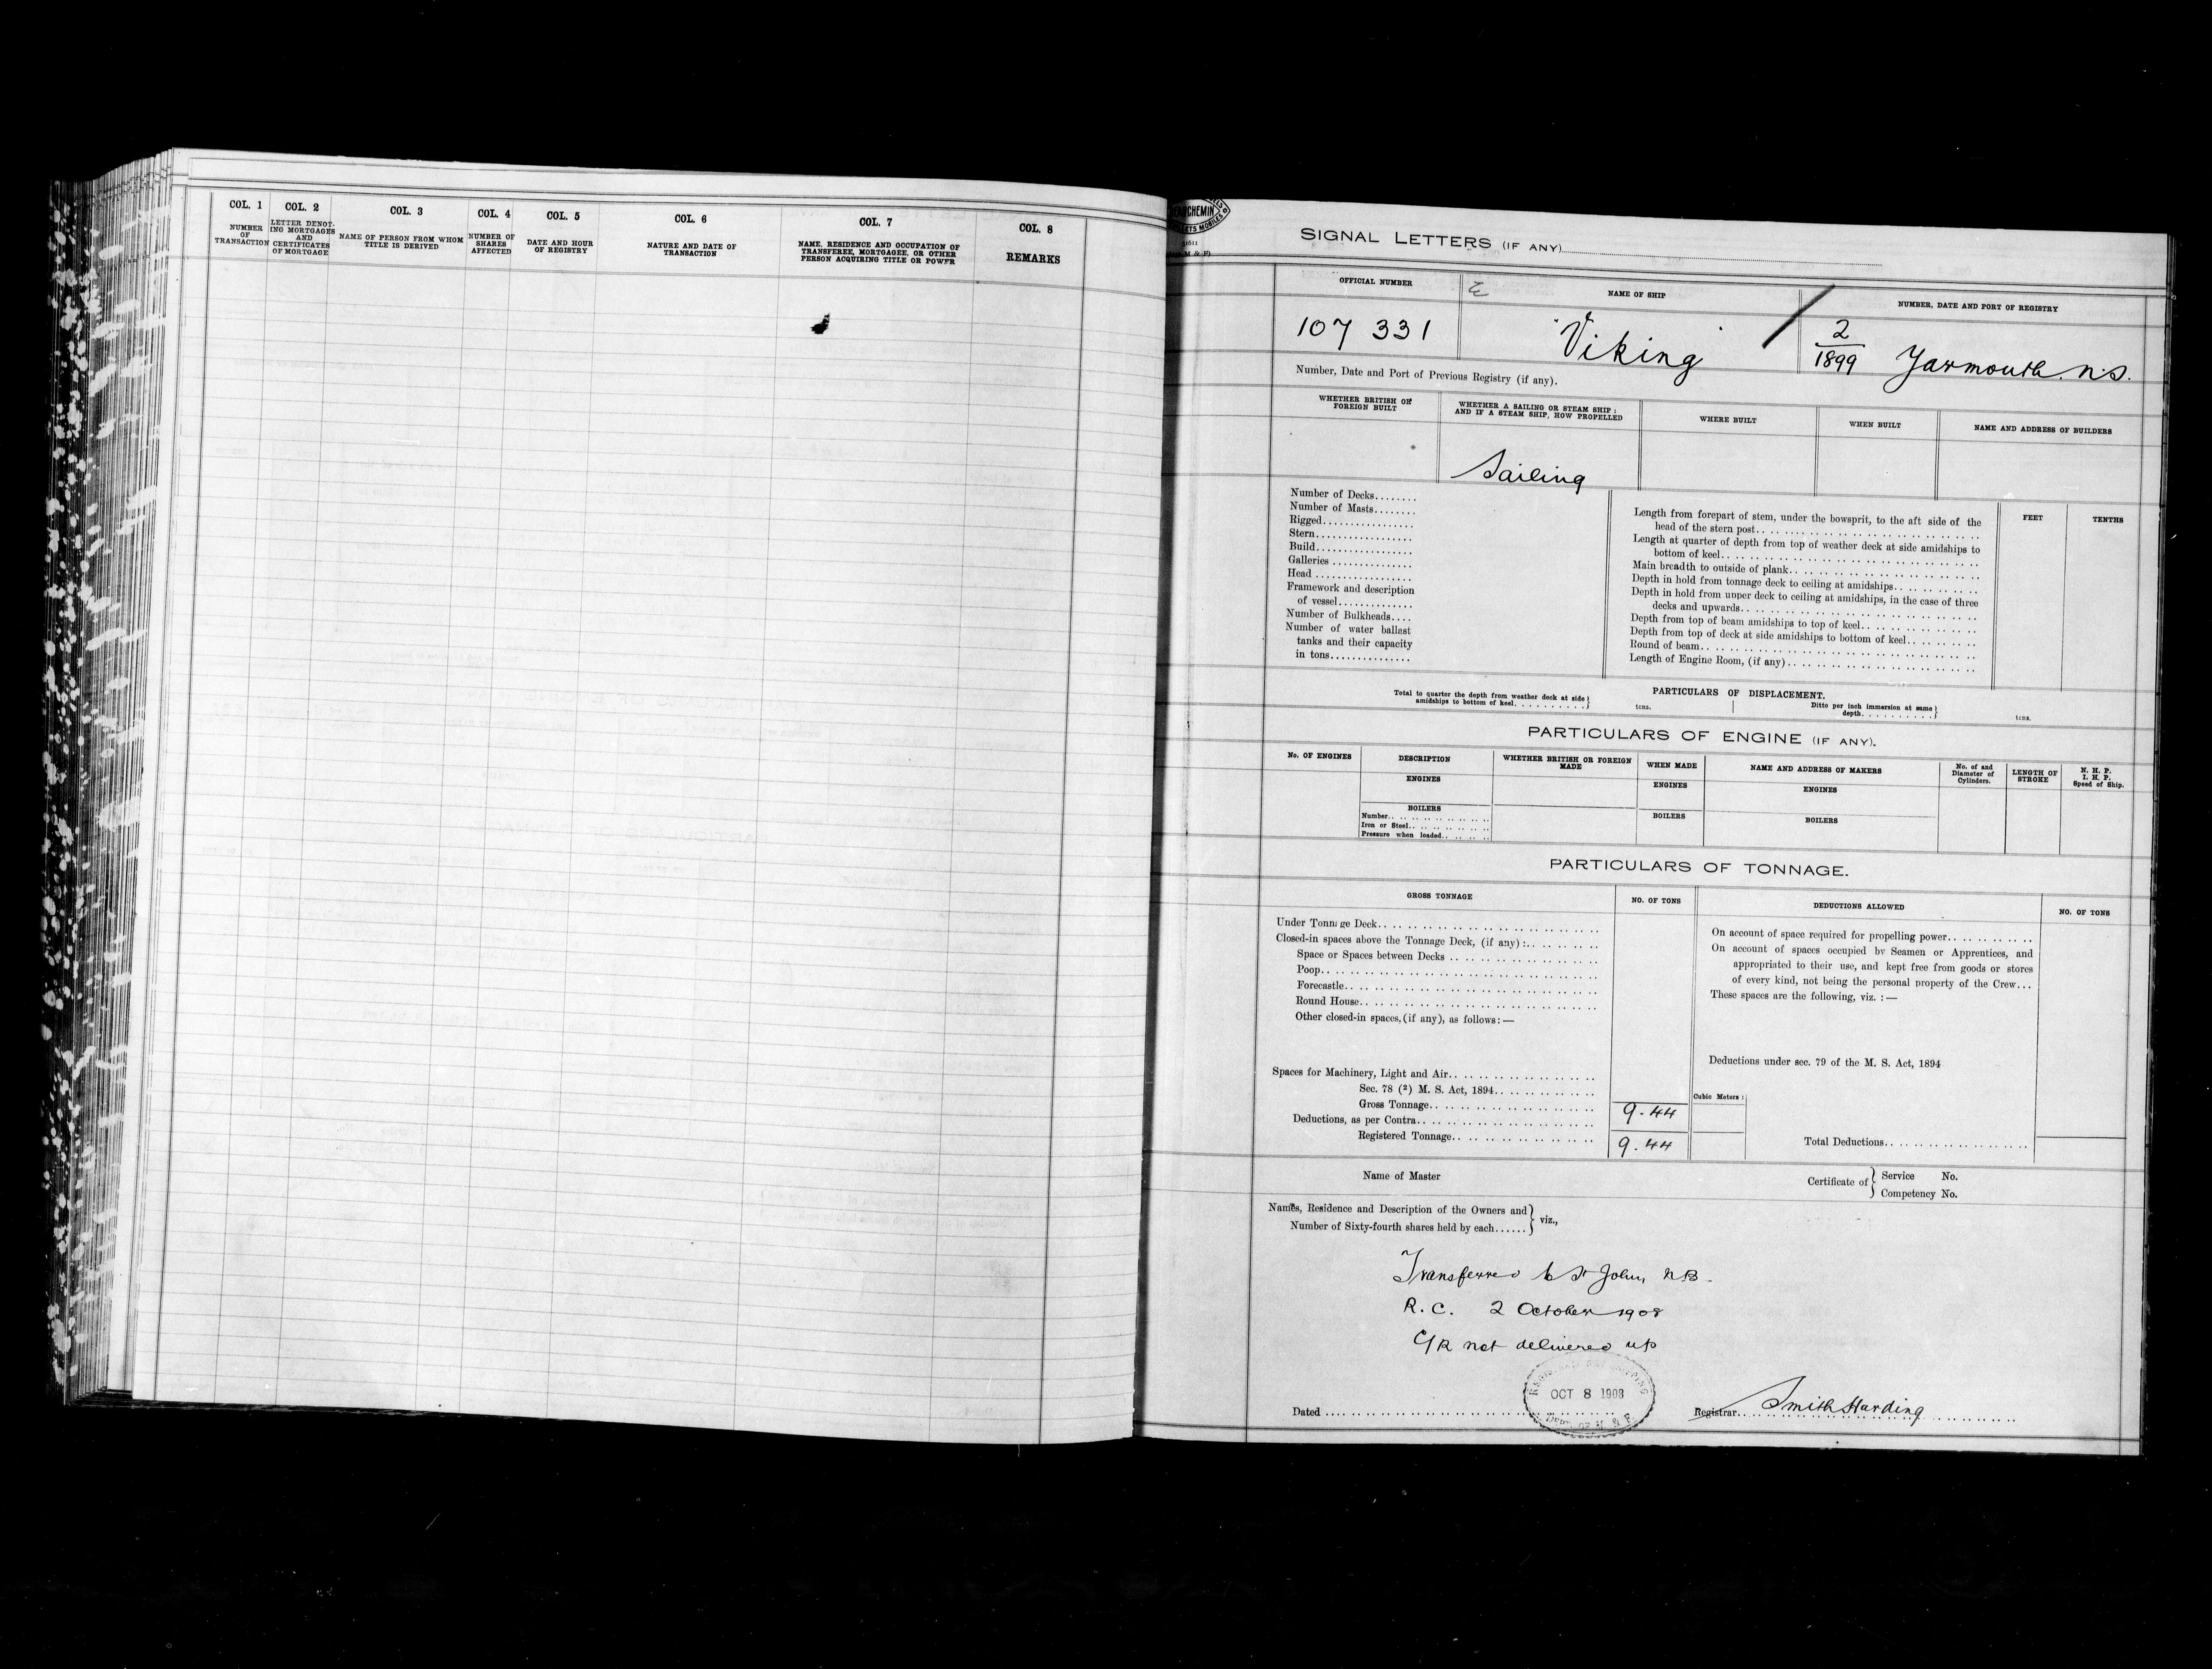 COL. 1
COL. 2
COL. 3
COL. 4
COL. 5
COL. 6
COL. 7
COL. 8
NUMBER
OF
TRANSACTION
LETTER DENOT-
ING MORTGAGES
AND
CERTIFICATES
OF MORTGAGE
NAME OF PERSON FROM WHOM
TITLE IS DERIVED
NUMBER OF
SHARES
AFFECTED
DATE AND HOUR
OF REGISTRY
NATURE AND DATE OF
TRANSACTION
NAME, RESIDENCE AND OCCUPATION OF
TRANSFEREE, MORTGAGEE, OR OTHER
PERSON ACQUIRING TITLE OR POWER
REMARKS
SIGNAL LETTERS (IF ANY)
OFFICIAL NUMBER
NAME OF SHIP
NUMBER, DATE AND PORT OF REGISTRY
107 331
"Viking"
2
1899 Yarmouth. N.S.
Number, Date and Port of Previous Registry (if any).
WHETHER BRITISH OR
FOREIGN BUILT
WHETHER A SAILING OR STEAM SHIP;
AND IF A STEAM SHIP, HOW PROPELLED
WHERE BUILT
WHEN BUILT
NAME AND ADDRESS OF BUILDERS
Sailing
Number of Decks........
Number of Masts........
Rigged.................
Stern..................
Build..................
Galleries ...............
Head ..................
Framework and description
of vessel..............
Number of Bulkheads....
Number of water ballast
tanks and their capacity
in tons...............
Length from forepart of stem, under the bowsprit, to the aft side of the
head of the stern post..
Length at quarter of depth from top of weather deck at side amidships to
bottom of keel..
Main breadth to outside of plank..
Depth in hold from tonnage deck to ceiling at amidships..
Depth in hold from upper deck to ceiling at amidships, in the case of three
decks and upwards..
Depth from top of beam amidships to top of keel..
Depth from top of deck at side amidships to bottom of keel..
Round of beam..
Length of Engine Room, (if any)..
FEET
TENTHS
PARTICULARS OF DISPLACEMENT.
Total to quarter the depth from weather deck at side
amidships to bottom of keel.
tons.
Ditto per inch immersion at same
depth.
tons.
PARTICULARS OF ENGINE (IF ANY).
No. OF ENGINES
DESCRIPTION
WHETHER BRITISH OR FOREIGN
MADE
WHEN MADE
NAME AND ADDRESS OF MAKERS
No. of and
Diameter of
Cylinders.
LENGTH OF
STROKE
N. H. P.
I. H. P.
Speed of Ship.
ENGINES
ENGINES
ENGINES
BOILERS
BOILERS
BOILERS
Number..
Iron or Steel..
Pressure when loaded..
PARTICULARS OF TONNAGE.
GROSS TONNAGE
NO. OF TONS
DEDUCTIONS ALLOWED
NO. OF TONS
Under Tonnage Deck..
Closed-in spaces above the Tonnage Deck, (if any) :..
Space or Spaces between Decks ..
Poop..
Forecastle..
Round House..
Other closed-in spaces, (if any), as follows: —
Spaces for Machinery, Light and Air..
Sec. 78 (2) M. S. Act, 1894..
Gross Tonnage.. 9.44
Deductions, as per Contra..
Registered Tonnage.. 9.44
On account of space required for propelling power..
On account of spaces occupied by Seamen or Apprentices, and
appropriated to their use, and kept free from goods or stores
of every kind, not being the personal property of the Crew...
These spaces are the following, viz. : —
Deductions under sec. 79 of the M. S. Act, 1894
Cubic Meters :
Total Deductions..
Name of Master
Certificate of
Service No.
Competency No.
Names, Residence and Description of the Owners and
Number of Sixty-fourth shares held by each......
viz.,
Transferred to St John, N.B.
R.C. 2 October 1908
C/R not delivered up
OCT 8 1908
Dated
Registrar. Smith Harding